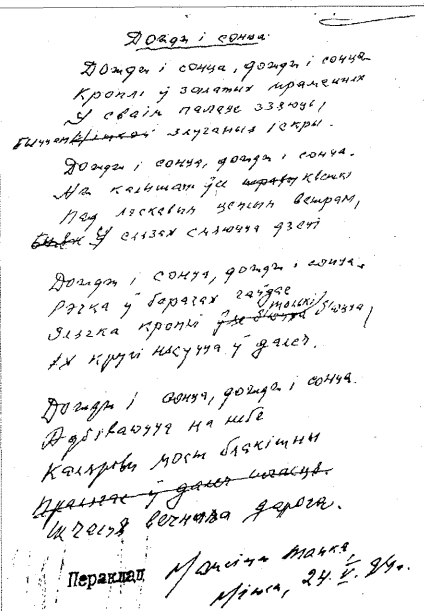 Дождж і сонца
Дождж і сонца, дождж і сонца
Кроплі ў залатых праменнях
У сваім палаце ззяюць,
злучаныя іскры.
Дождж і сонца, дождж і сонца.
На кветкі
Пад ласкавым ветрам,
У слязах смяюцца дзеці
Дождж і сонца, дождж і сонца.
Рэчка ў берагах гайдае
кроплі толькі б'юцца,
Іх кругі нясуцца ў далеч.
Дождж і сонца, дождж і сонца.
Адбіваючца на небе
Каляровы мост блакітны
Шчасця вечная дарога.
Пераклад Максіма Танка,
Мінск, 24.V.84г.